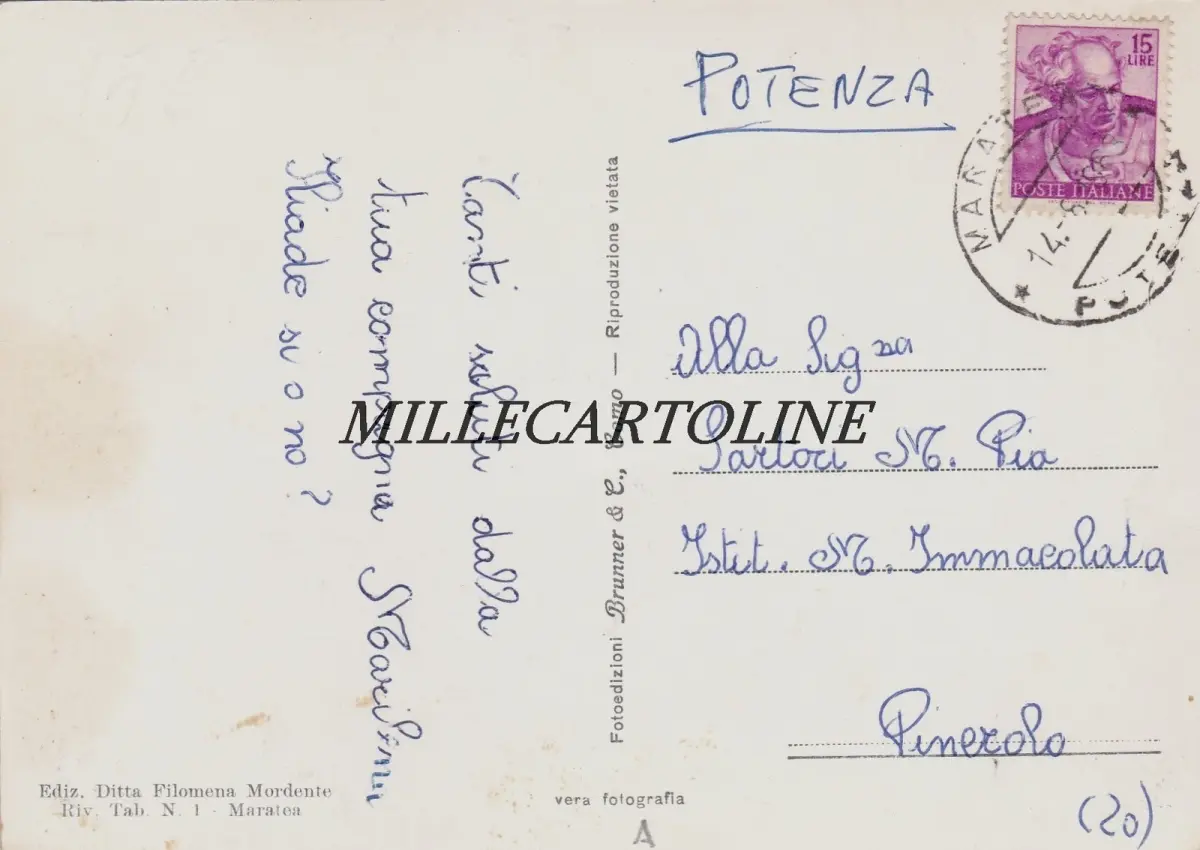 POTENZA
15
LIRE
POSTE ITALIANE
MARATEA
14.
POTE
Tanti saluti dalla
tua compagna
Iliade si o no?
Fotoedizioni Brunner & C., Como — Riproduzione vietata
Alla Sig ra
MILLECARTOLINE
Sartori M. Pia
Istit. M. Immacolata
Pinerolo
(20)
Ediz. Ditta Filomena Mordente
Riv. Tab. N. 1 - Maratea
vera fotografia
A